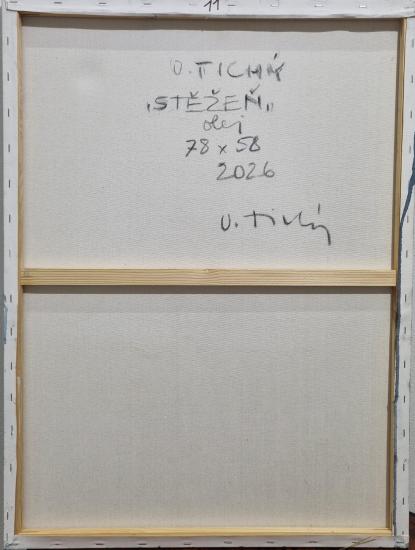 11
O. TICHÝ
„STĚŽEŇ„
olej
78 x 58
2026
O. Tichý